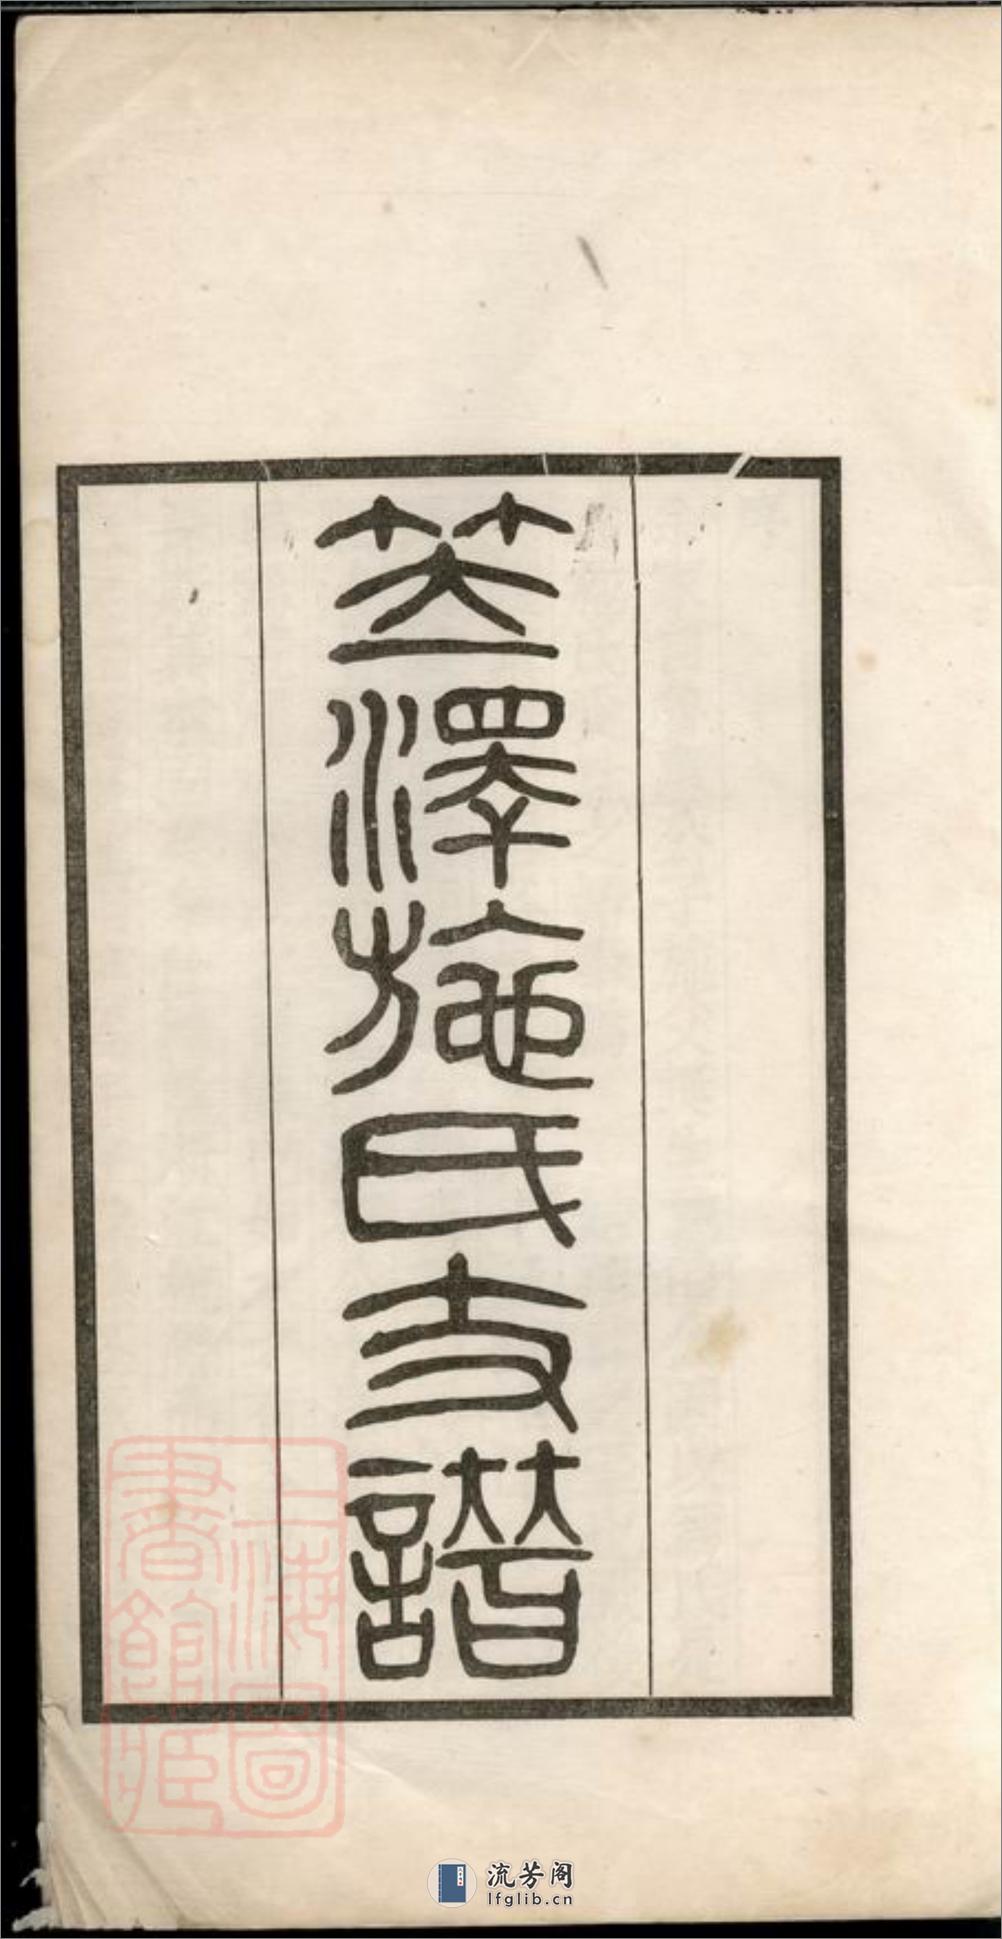 笠澤施氏支譜
上海圖書館藏
流芳阁
lfglib.cn